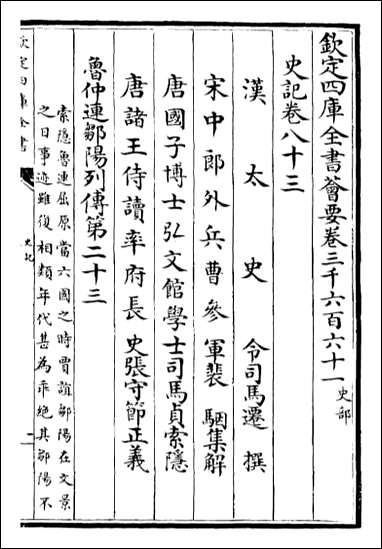 欽定四庫全書薈要卷三千六百六十一 史部
史記卷八十三
漢太史令司馬遷撰
宋中郎外兵曹參軍裴駰集解
唐國子博士弘文館學士司馬貞索隱
唐諸王侍讀率府長史張守節正義
魯仲連鄒陽列傳第二十三
索隱魯連屈原當六國之時賈誼鄒陽在文景
之日事迹雖復相類年代甚為乖絶其鄒陽不
欽定四庫全書
史記